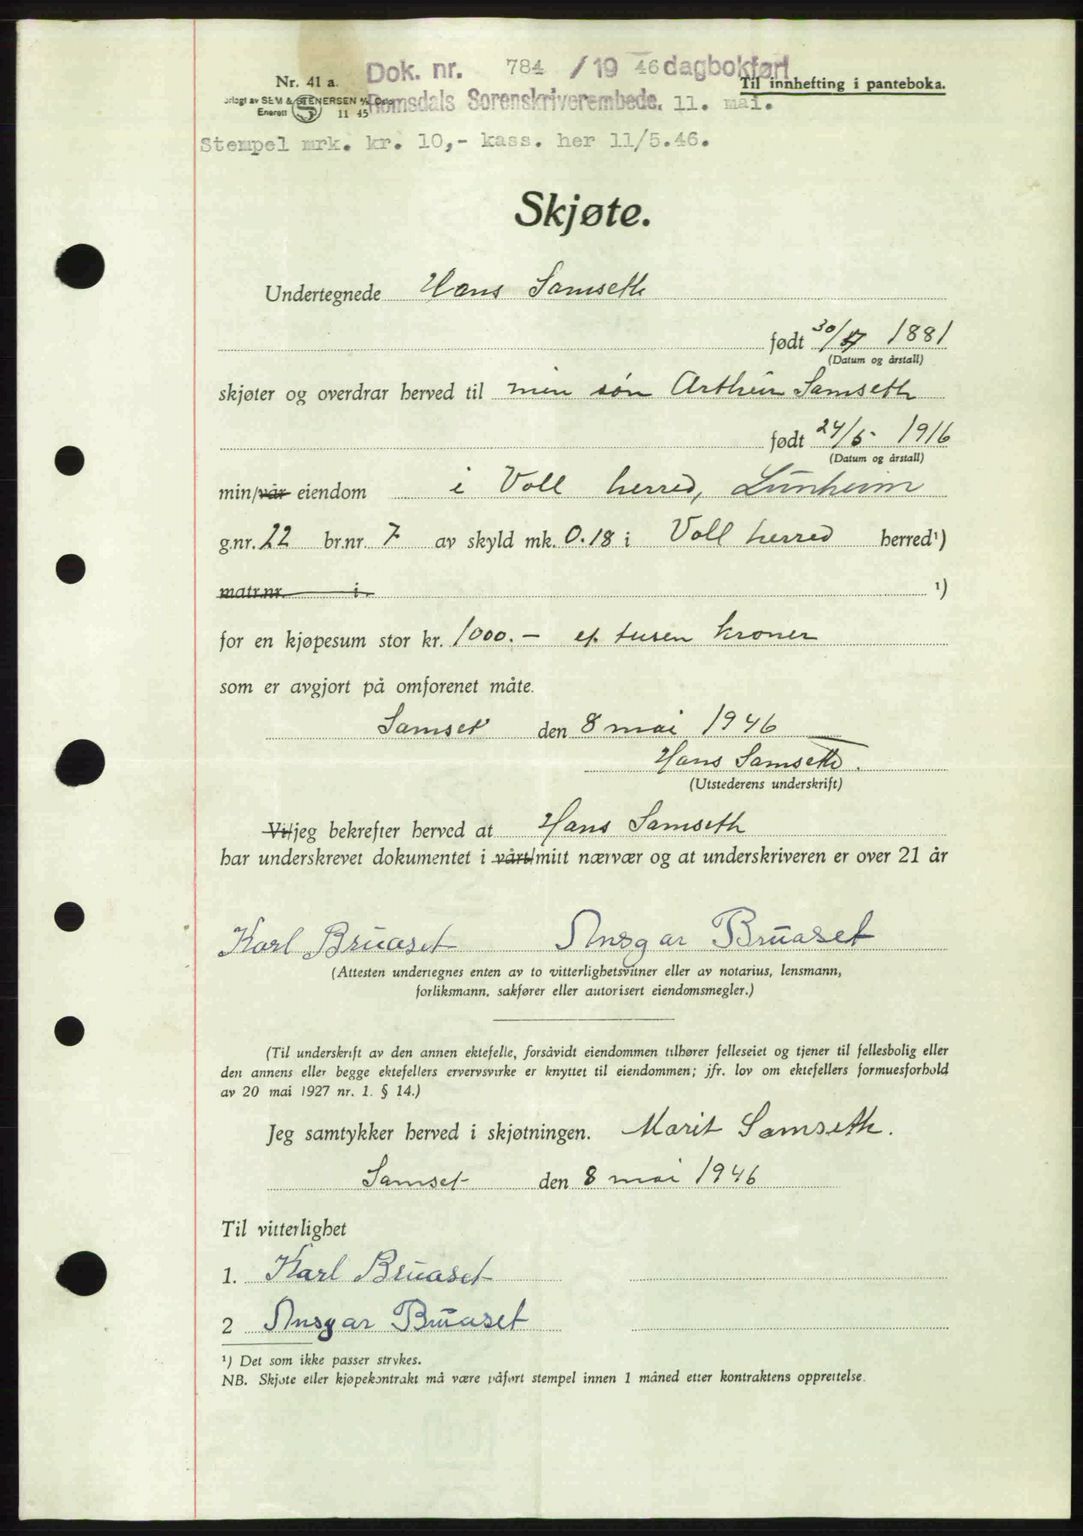 Dok. nr. 784 / 19 46 dagbokført
Nr. 41 a.
Til innhefting i panteboka.
Romsdals Sorenskriverembede. 11. mai.
orlagt av SEM & STENERSEN A/S Oslo
Enerett S 11 45
Stempel mrk. kr. 10,- kass. her 11/5.46.
Skjøte.
Undertegnede Hans Samseth
født 30/ 1881
(Datum og årstall)
skjøter og overdrar herved til min søn Arthur Samseth
født 24/5- 1916
(Datum og årstall)
min/vår eiendom i Voll herred, Lunheim
g.nr. 22 br.nr. 7 av skyld mk. 0.18 i Voll herred herred¹)
matr.nr. i ¹)
for en kjøpesum stor kr. 1000.- et tusen kroner
som er avgjort på omforenet måte.
Samset den 8 mai 1946
Hans Samseth.
(Utstederens underskrift)
Vi/jeg bekrefter herved at Hans Samseth
har underskrevet dokumentet i vårt/mitt nærvær og at underskriveren er over 21 år
Karl Bruaset Ansgar Bruaset
(Attesten undertegnes enten av to vitterlighetsvitner eller av notarius, lensmann,
forliksmann, sakfører eller autorisert eiendomsmegler.)
(Til underskrift av den annen ektefelle, forsåvidt eiendommen tilhører felleseiet og tjener til fellesbolig eller
den annens eller begge ektefellers ervervsvirke er knyttet til eiendommen; jfr. lov om ektefellers formuesforhold
av 20 mai 1927 nr. 1. § 14.)
Jeg samtykker herved i skjøtningen. Marit Samseth.
Samset den 8 mai 1946
Til vitterlighet
1. Karl Bruaset
2 Ansgar Bruaset
¹) Det som ikke passer strykes.
NB. Skjøte eller kjøpekontrakt må være påført stempel innen 1 måned etter kontraktens opprettelse.